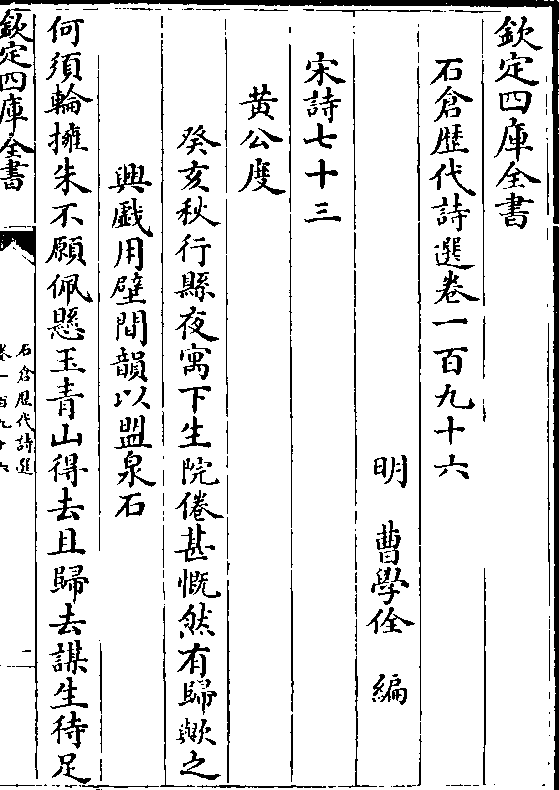 欽定四庫全書
石倉歴代詩選卷一百九十六
明 曹學佺 編
宋詩七十三
黄公度
癸亥秋行縣夜寓下生院倦甚慨然有歸歟之
興戲用壁間韻以盟泉石
何須輪擁朱不願佩懸玉青山得去且歸去謀生待足
欽定四庫全書
石倉歴代詩選
卷一百九十六
一